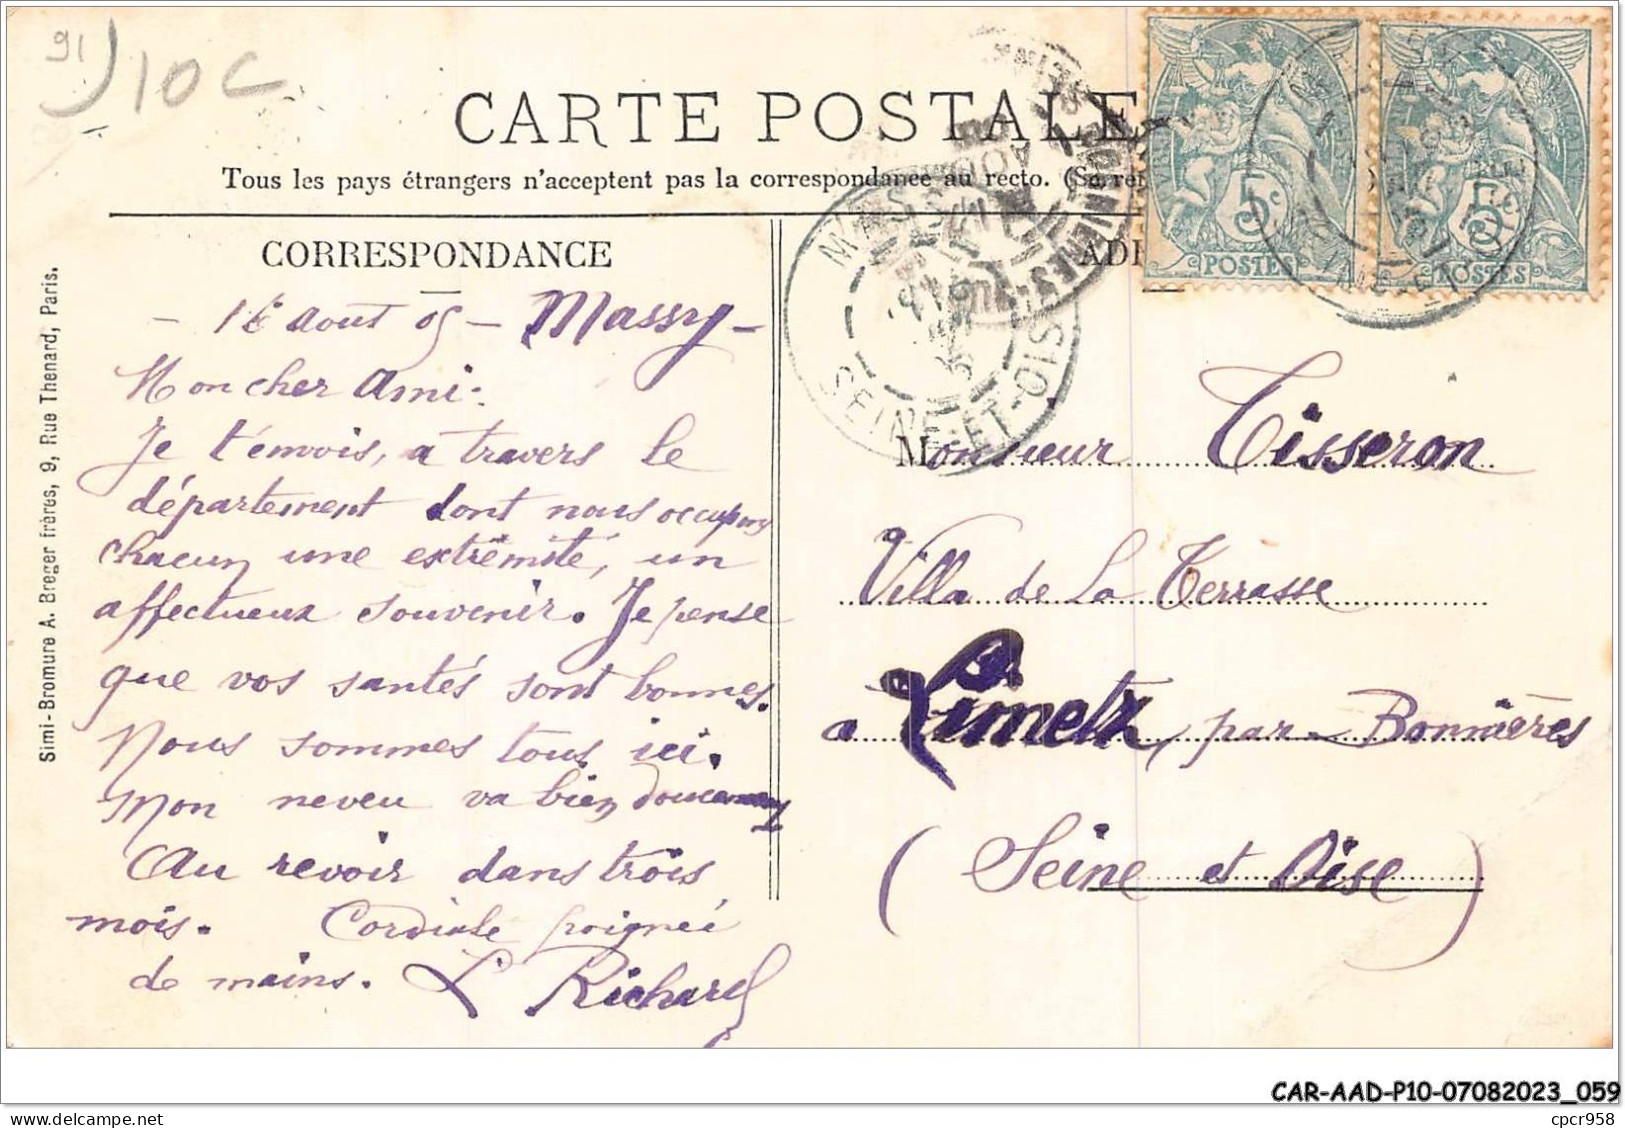 91
10C
CARTE POSTALE
Tous les pays étrangers n'acceptent pas la correspondance au recto.
CORRESPONDANCE
16 Aout 05 - Massy -
Mon cher Ami:
Je t'envois, a travers le
département dont nous occupons
chacun une extrêmité, un
affectueux souvenir. Je pense
que vos santés sont bonnes.
Nous sommes tous ici.
Mon neveu va bien doucement
Au revoir dans trois
mois. Cordiale poignée
de mains. L Richard
Simi-Bromure A. Breger frères, 9, Rue Thenard, Paris.
MASSY
SEINE-ET-OISE
5c
POSTES
5c
POSTES
Monsieur Tisseron
Villa de La Terrasse
a Limetz, par Bonnières
(Seine et Oise)
CAR-AAD-P10-07082023_059
cpcr958